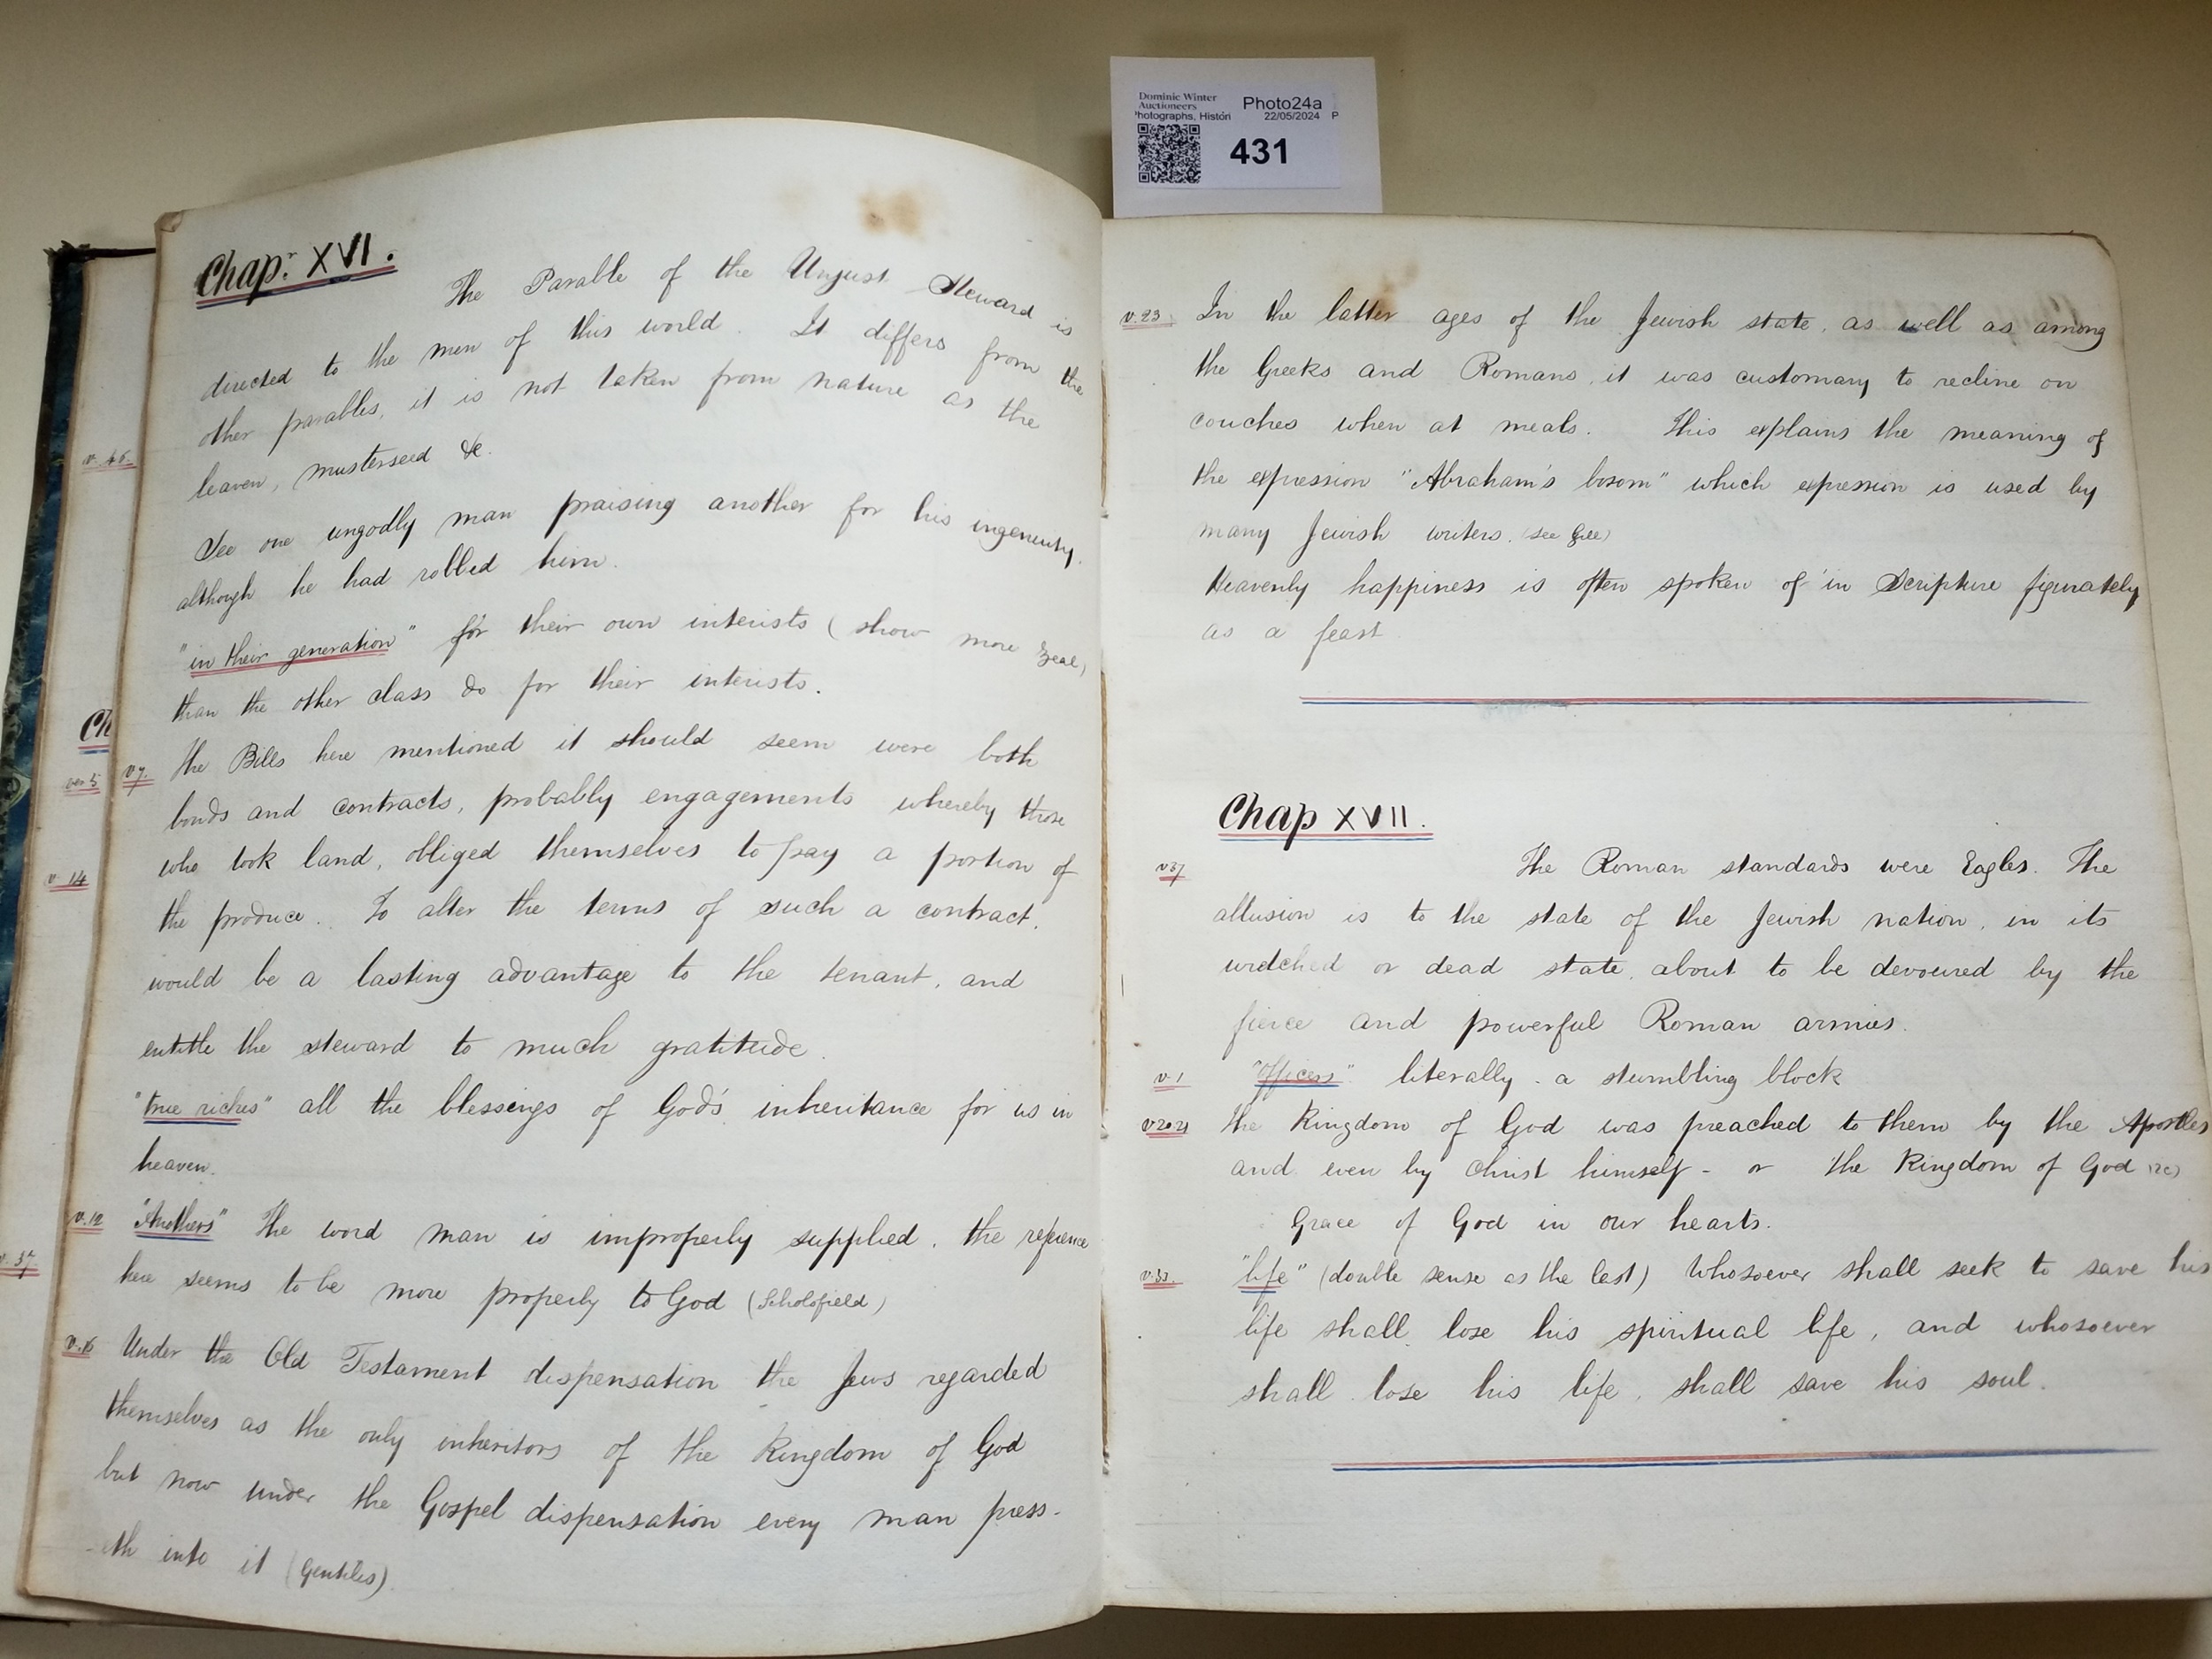 Dominic Winter
Auctioneers
Photo24a
Photographs, Histori
22/05/2024 P
431
Chapr. XVI.
The Parable of the Unjust Steward is
directed to the men of this world. It differs from the
other parables, it is not taken from nature as the
leaven, musterseed &c.
See one ungodly man praising another for his ingenuity,
although he had robbed him.
"in their generation" for their own interists (show more zeal,
than the other class do for their interists.
v 7. the Bills here mentioned it should seem were both
bonds and contracts, probably engagements whereby those
who took land, obliged themselves to pay a portion of
the produce. To alter the terms of such a contract,
would be a lasting advantage to the tenant, and
entitle the steward to much gratitude.
"true riches" all the blessings of God's inheritance for us in
heaven.
v.12 "Anothers" The word man is improperly supplied, the refrence
here seems to be more properly to God (Scholofield)
v.16 Under the Old Testament dispensation the Jews regarded
themselves as the only inheritors of the Kingdom of God
but now under the Gospel dispensation every man press-
-eth into it (Gentiles)
v. 46.
Ch
ver 5
v 14
v. 37
v. 23 In the latter ages of the Jewish state, as well as among
the Greeks and Romans, it was customary to recline on
couches when at meals. This explains the meaning of
the expression "Abraham's bosom" which expression is used by
many Jewish writers. (see Gill)
Heavenly happiness is often spoken of in Scripture figurately
as a feast
Chap XVII.
v 37 The Roman standards were Eagles. The
allusion is to the state of the Jewish nation, in its
wretched or dead state, about to be devoured by the
fierce and powerful Roman armies.
v. 1 "Offices" literally - a stumbling block
v 20.21 the Kingdom of God was preached to them by the Apostles
and even by Christ himself - or the Kingdom of God (ie)
Grace of God in our hearts.
v. 33. "life" (double sense as the last) Whosoever shall seek to save his
life shall lose his spiritual life, and whosoever
shall lose his life, shall save his soul.